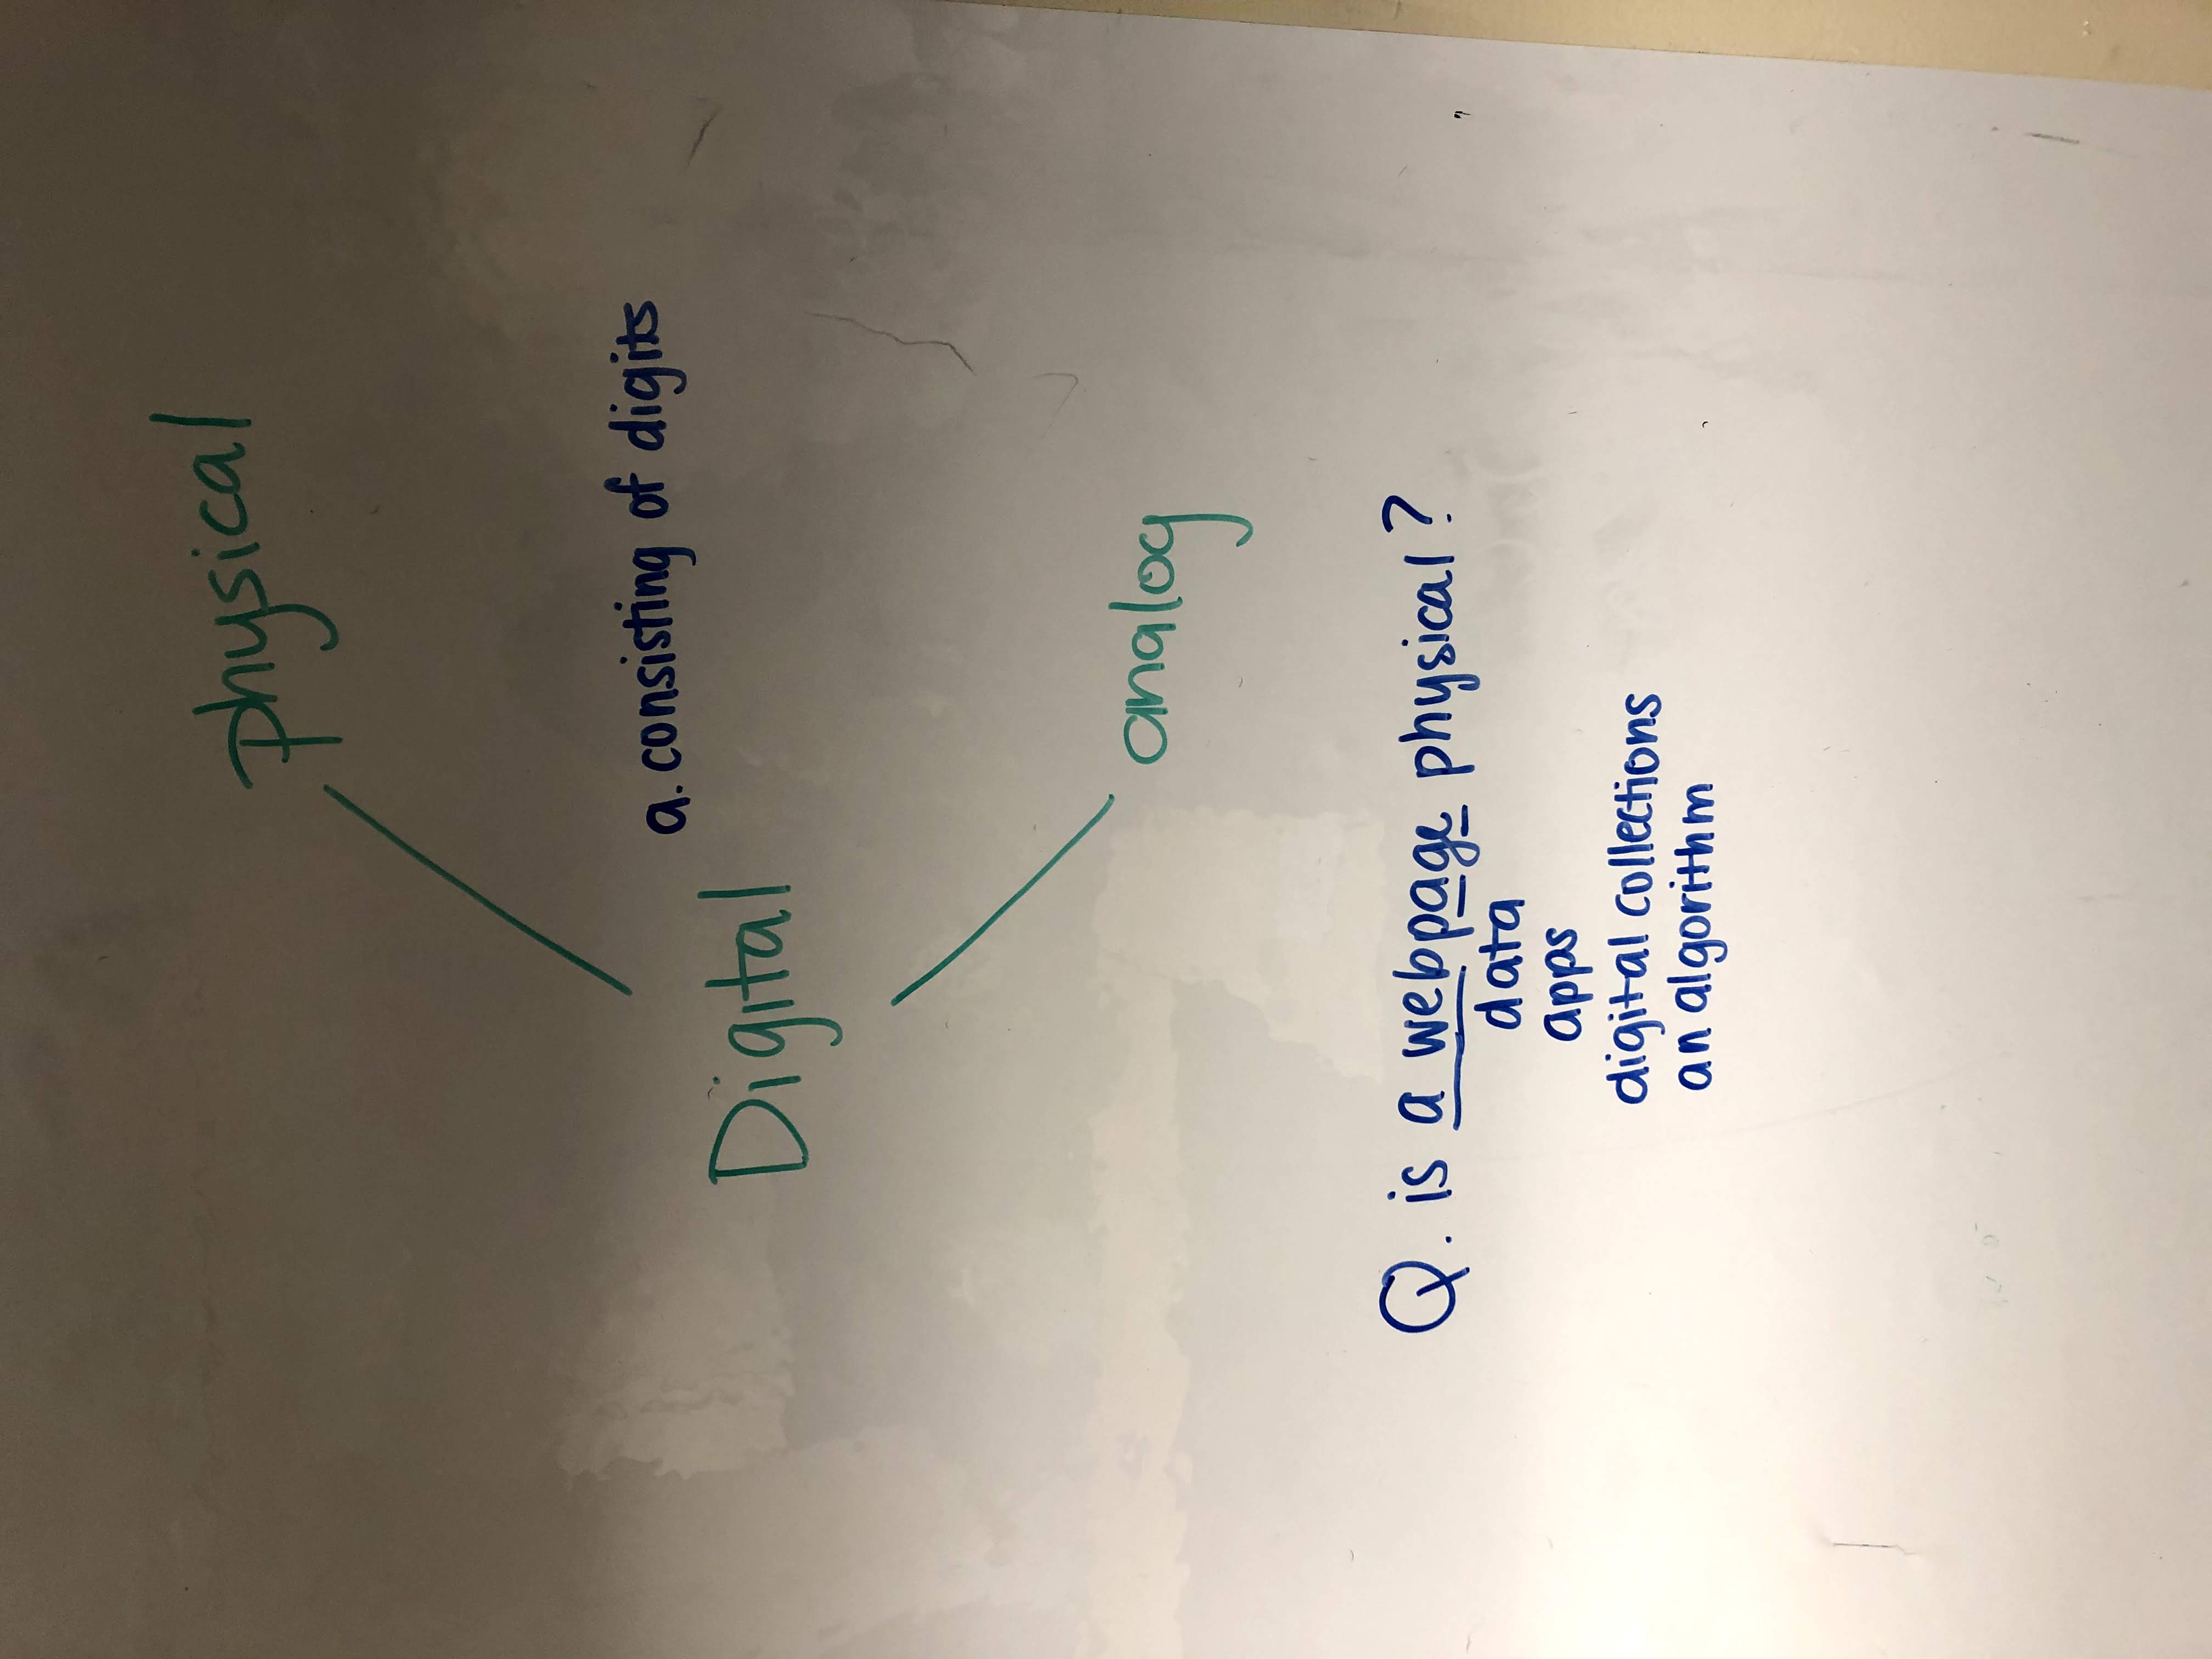 physical
a. consisting of digits
Digital
analog
Q. is a webpage physical?
data
apps
digital collections
an algorithm